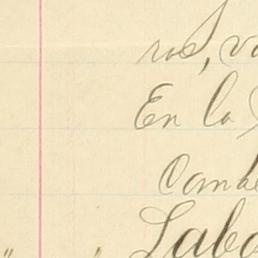 ros, va
En la
Camb
Labo
" "